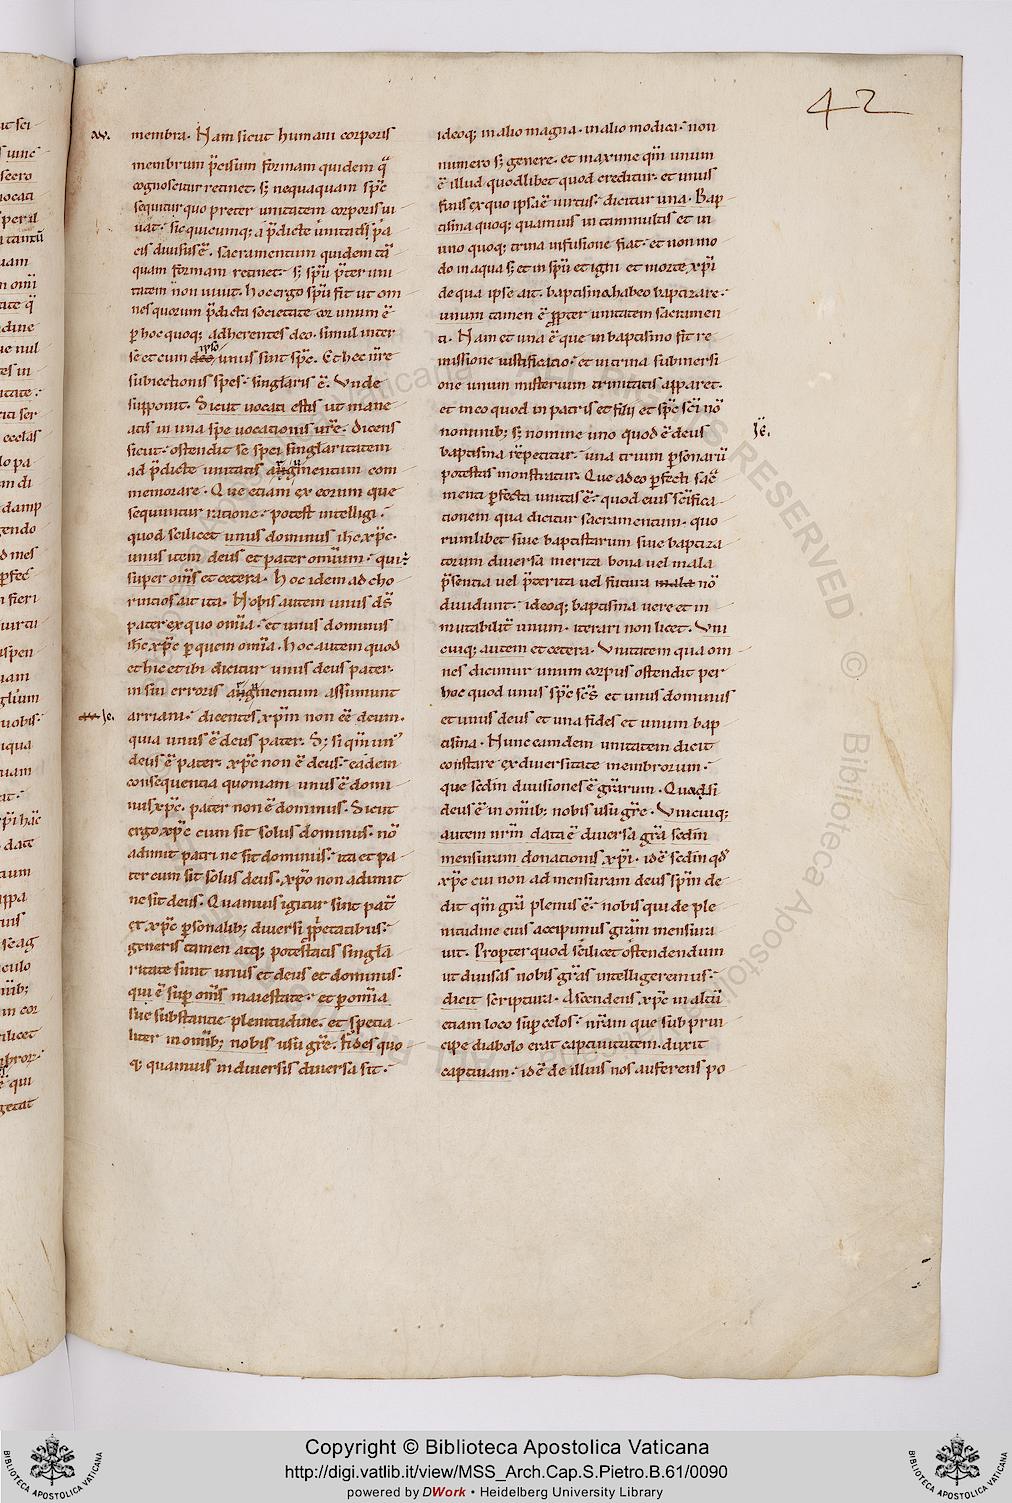 42
av.
membra. Nam sicut humani corporis
membrum p̄cisum formam quidem q̄
cognoscitur retinet. s; nequaquam sp̄c
sequitur quo preter unitatem corporis ui
uat. sic quicumq; a p̄dictę unitatis p̄a
cis diuisus ē. sacramentum quidem tā
quam formam retinet. s; sp̄u p̄ter uni
tatem non uiuit. hoc ergo sp̄u fit ut om
nes quorum p̄dicta societate cor unum ē
p hoc quoq; adherentes deo. simul inter
se et cum deo ipso unus sint sp̄c. Et hec ur̄e
subiectionis spes. singularis ē. Unde
supponit. Sicut uocati estis ut mane
atis in una spe uocationis ur̄e. dicens
sicut. ostendit se spei singlaritatem
ad p̄dicte unitatis argumentum com
memorare. Que etiam ex eorum que
sequuntur ratione. potest intelligi.
quod scilicet unus dominus ihc xp̄c.
unus item deus et pater omium. qui
super om̄s et cetera. hoc idem ad cho
rintios ait ita. Nobis autem unus d̄s
pater ex quo om̄ia. et unus dominus
ihc xp̄c p quem om̄ia. hoc autem quod
et hic et ibi dicitur unus deus pater.
in sui erroris argumentum assumunt
arriani. dicentes xp̄m non ēe deum.
quia unus ē deus pater. S; si qm̄ un'
deus ē pater. xp̄c non ē deus. eadem
consequentia quoniam unus ē domi
nus xp̄c. pater non ē dominus. Sicut
ergo xp̄c cum sit solus dominus. nō
adimit patri ne sit dominus. ita et pa
ter cum sit solus deus. xp̄o non adimit
ne sit deus. Quamuis igitur sint pat̄
et xp̄c p̄sonalib; diuersi p̄prietatibus.
generis tamen atq; potestatis singla
ritate sunt unus et deus et dominus.
qui ē sup om̄s maiestate. et p om̄ia
sue substantie plenitudine. et specia
liter in om̄ib; nobis usu gr̄e. fides quo
q; quamuis in diuersis diuersa sit.
ideoq; in alio magna. in alio modica. non
numero s; genere. et maxime qm̄ unum
ē illud quodlibet quod creditur. et unus
finis ex quo ipsa ē uirtus. dicitur una. Bap
tisma quoq; quamuis in tam multis et in
uno quoq; trina infusione fiat. et non mo
do in aqua s; et in sp̄u et igni et morte xp̄i
de qua ipse ait. baptisma habeo baptizare.
unum tamen ē p̄pter unitatem sacramen
ti. Nam et una ē que in baptismo fit re
missione iustificatio. et ui trina submersi
one unum misterium trinitatis apparet.
et in eo quod in patris et filii et sp̄c sc̄i nō
nominib; s; nomine uno quod ē deus
Je.
baptisma repetitur. una trium p̄sonarū
potestas monstratur. Que adeo p̄fecti sac̄
menti p̄fecta unitas ē. quod eius sc̄ifica
tionem qua dicitur sacramentum. quo
rumlibet siue baptistarum siue baptiza
torum diuersa merita bona uel mala
p̄sentia uel p̄terita uel futura mala nō
diuidunt. ideoq; baptisma uere et in
mutabilit̄ unum. iterari non licet. Uni
cuiq; autem et cetera. Unitatem qua om
nes dicimur unum corpus ostendit per
hoc quod unus sp̄c sc̄s. et unus dominus
et unus deus et una fides et unum bap
tisma. Hunc eamdem unitatem dicit
constare ex diuersitate membrorum.
que sedm̄ diuisiones ē grārum. Quasi
deus ē in om̄ib; nobis usu gr̄e. Unicuiq;
autem nr̄m data ē diuersa grā sedm̄
mensuram donationis xp̄i. id ē sedm̄ qd̄
xp̄c cui non ad mensuram deus sp̄m de
dit qm̄ grā plenus ē. nobis qui de ple
nitudine eius accipimus grām mensura
uit. Propter quod scilicet ostendendum
ut diuisas nobis grās intelligeremus.
dicit scriptura. Ascendens xp̄c in altū
etiam loco sup celos. nr̄am que sub prin
cipe diabolo erat captiuitatem. duxit
captiuam. id ē de illius nos auferens po
Copyright © Biblioteca Apostolica Vaticana
http://digi.vatlib.it/view/MSS_Arch.Cap.S.Pietro.B.61/0090
powered by DWork • Heidelberg University Library
BIBLIOTECA APOSTOLICA VATICANA
BIBLIOTECA APOSTOLICA VATICANA